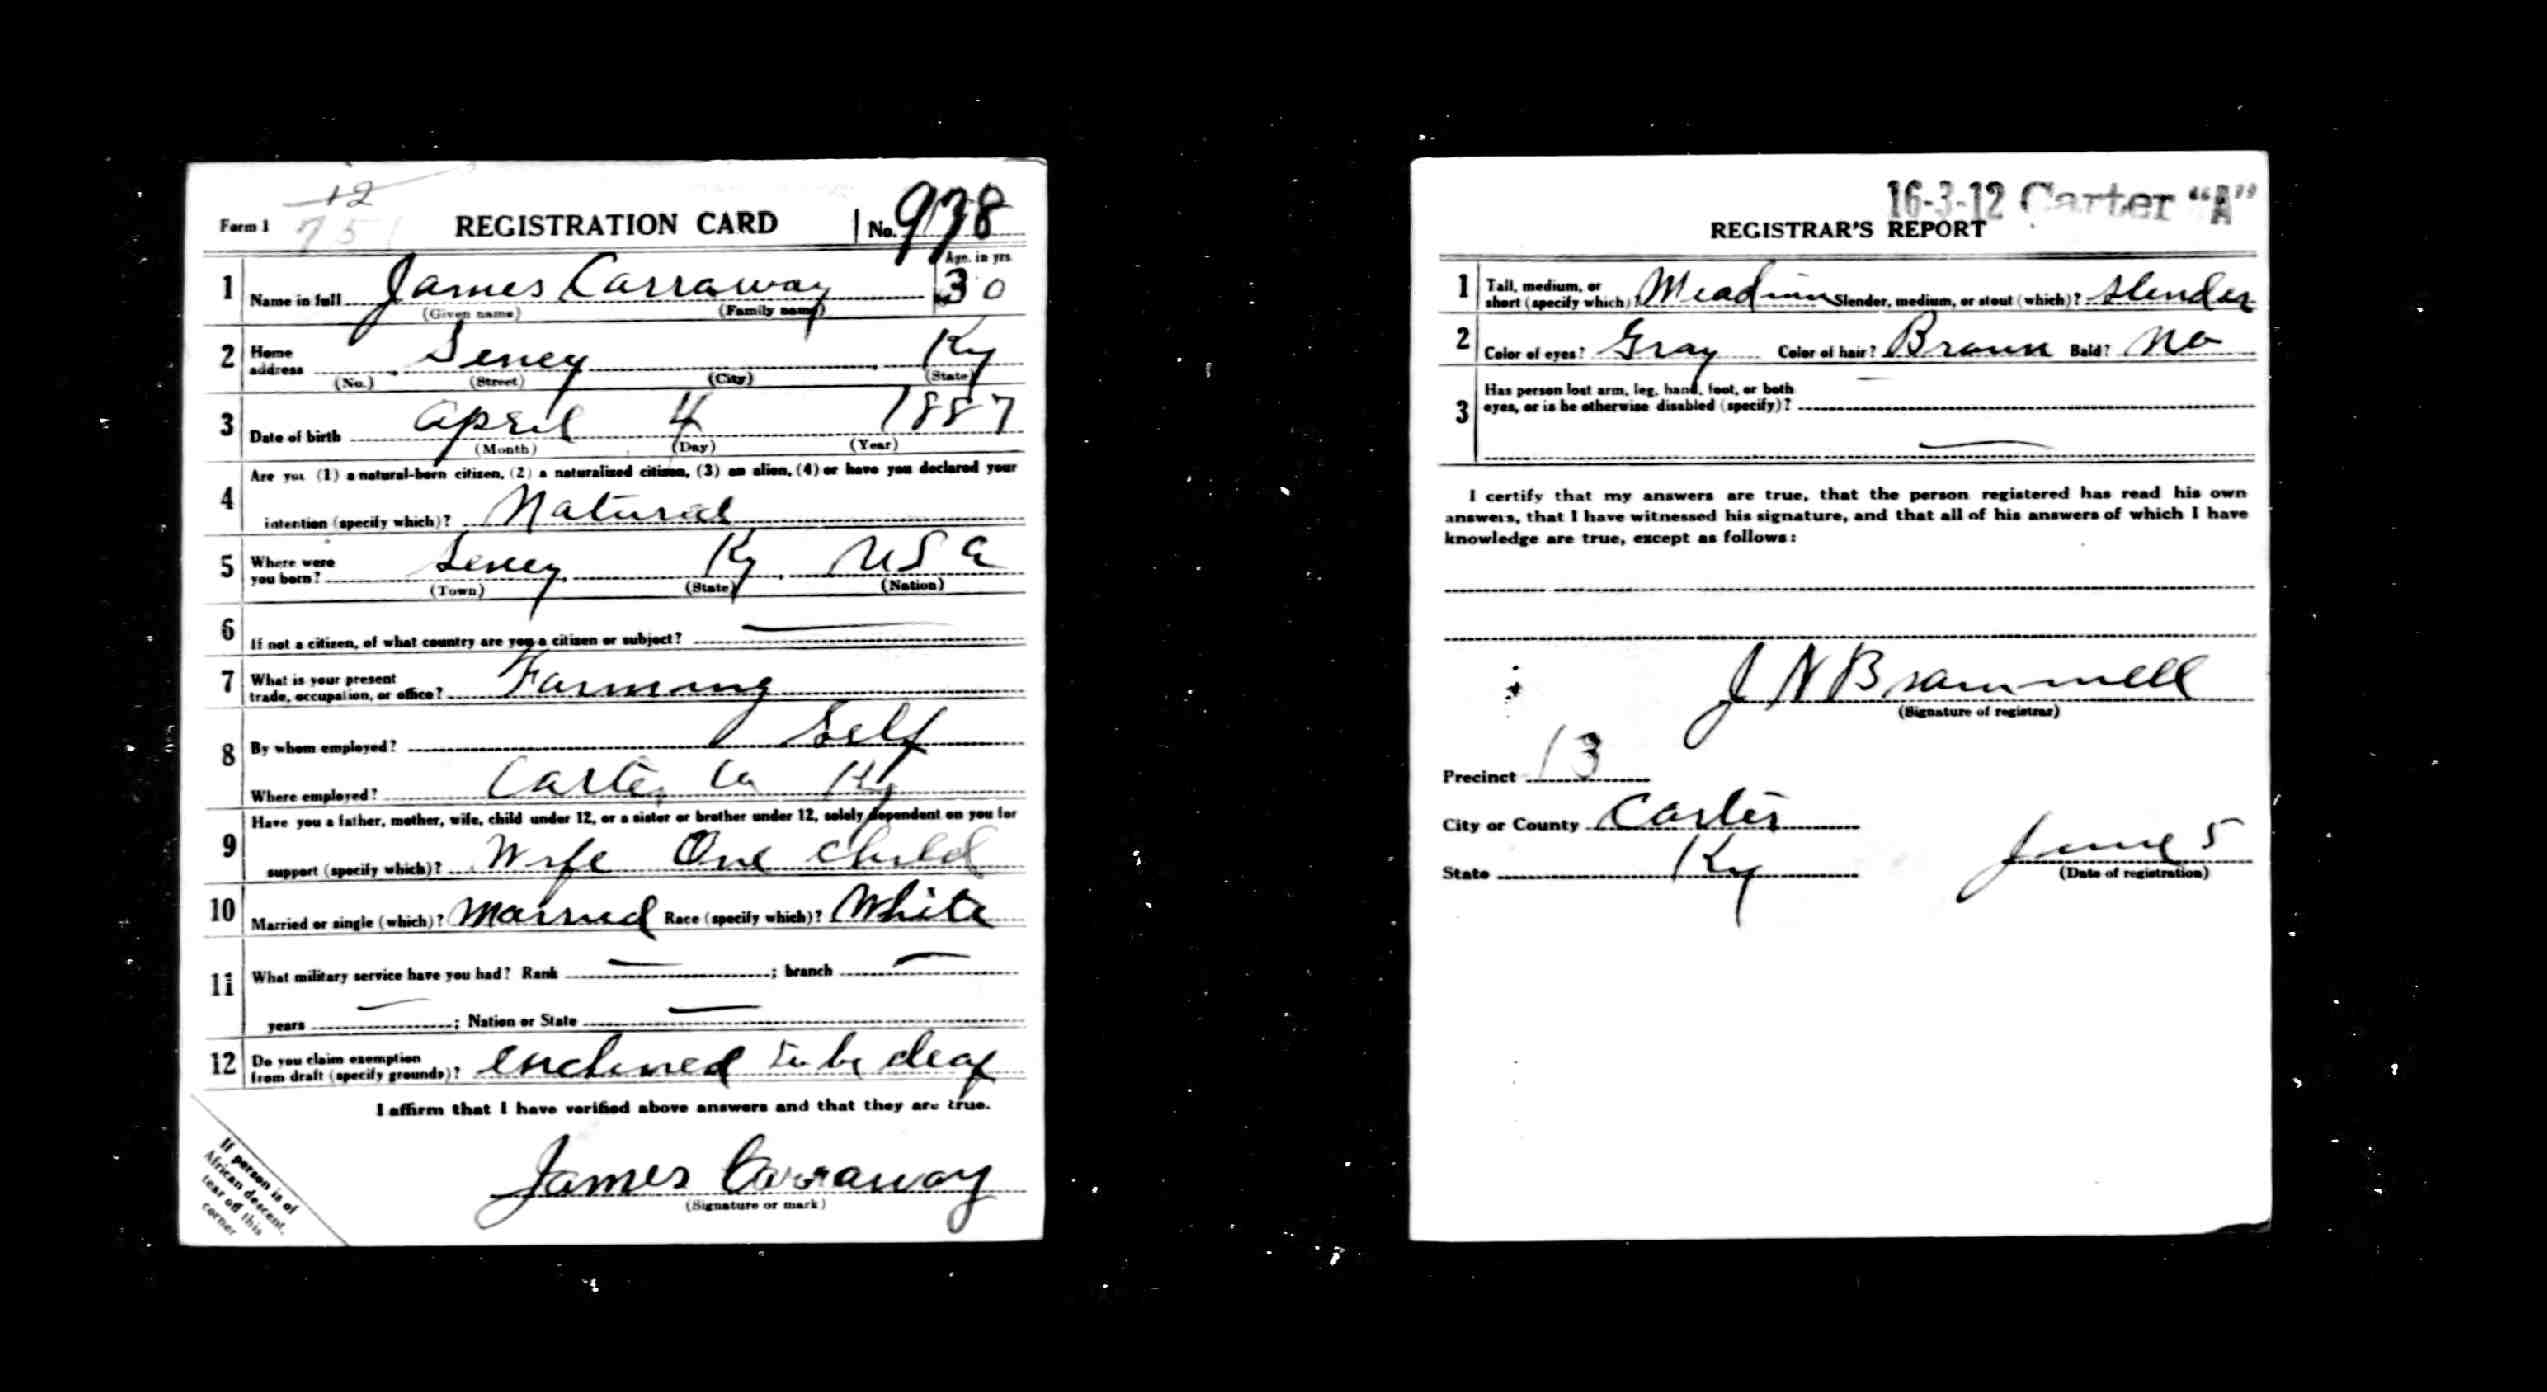 12
Form 1 751 REGISTRATION CARD No. 938
1 Name in full James Carraway Age, in yrs. 30
(Given name) (Family name)
2 Home address Seney Ky
(No.) (Street) (City) (State)
3 Date of birth April 4 1887
(Month) (Day) (Year)
4 Are you (1) a natural-born citizen, (2) a naturalized citizen, (3) an alien, (4) or have you declared your
intention (specify which)? Natural
5 Where were you born? Seney Ky USA
(Town) (State) (Nation)
6 If not a citizen, of what country are you a citizen or subject?
7 What is your present
trade, occupation, or office? Farming
8 By whom employed? Self
Where employed? Carter Co Ky
9 Have you a father, mother, wife, child under 12, or a sister or brother under 12, solely dependent on you for
support (specify which)? Wife One child
10 Married or single (which)? Married Race (specify which)? White
11 What military service have you had? Rank ; branch
years ; Nation or State
12 Do you claim exemption
from draft (specify grounds)? enclined to be deaf
I affirm that I have verified above answers and that they are true.
James Carraway
(Signature or mark)
If person is of
African descent,
tear off this
corner
16-3-12 Carter "A"
REGISTRAR'S REPORT
1 Tall, medium, or
short (specify which)? Meadium Slender, medium, or stout (which)? Slender
2 Color of eyes? Gray Color of hair? Brown Bald? No
3 Has person lost arm, leg, hand, foot, or both
eyes, or is he otherwise disabled (specify)?
I certify that my answers are true, that the person registered has read his own
answers, that I have witnessed his signature, and that all of his answers of which I have
knowledge are true, except as follows:
J N Brammell
(Signature of registrar)
Precinct 13
City or County Carter
State Ky June 5
(Date of registration)